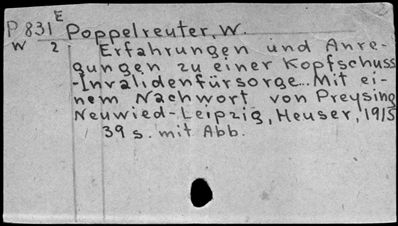 P 831 E Poppelreuter, W.
W 2 Erfahrungen und Anre-
gungen zu einer Kopfschuss
-Invalidenfürsorge... Mit ei-
nem Nachwort von Preysing
Neuwied-Leipzig, Heuser, 1915
39 s. mit Abb.